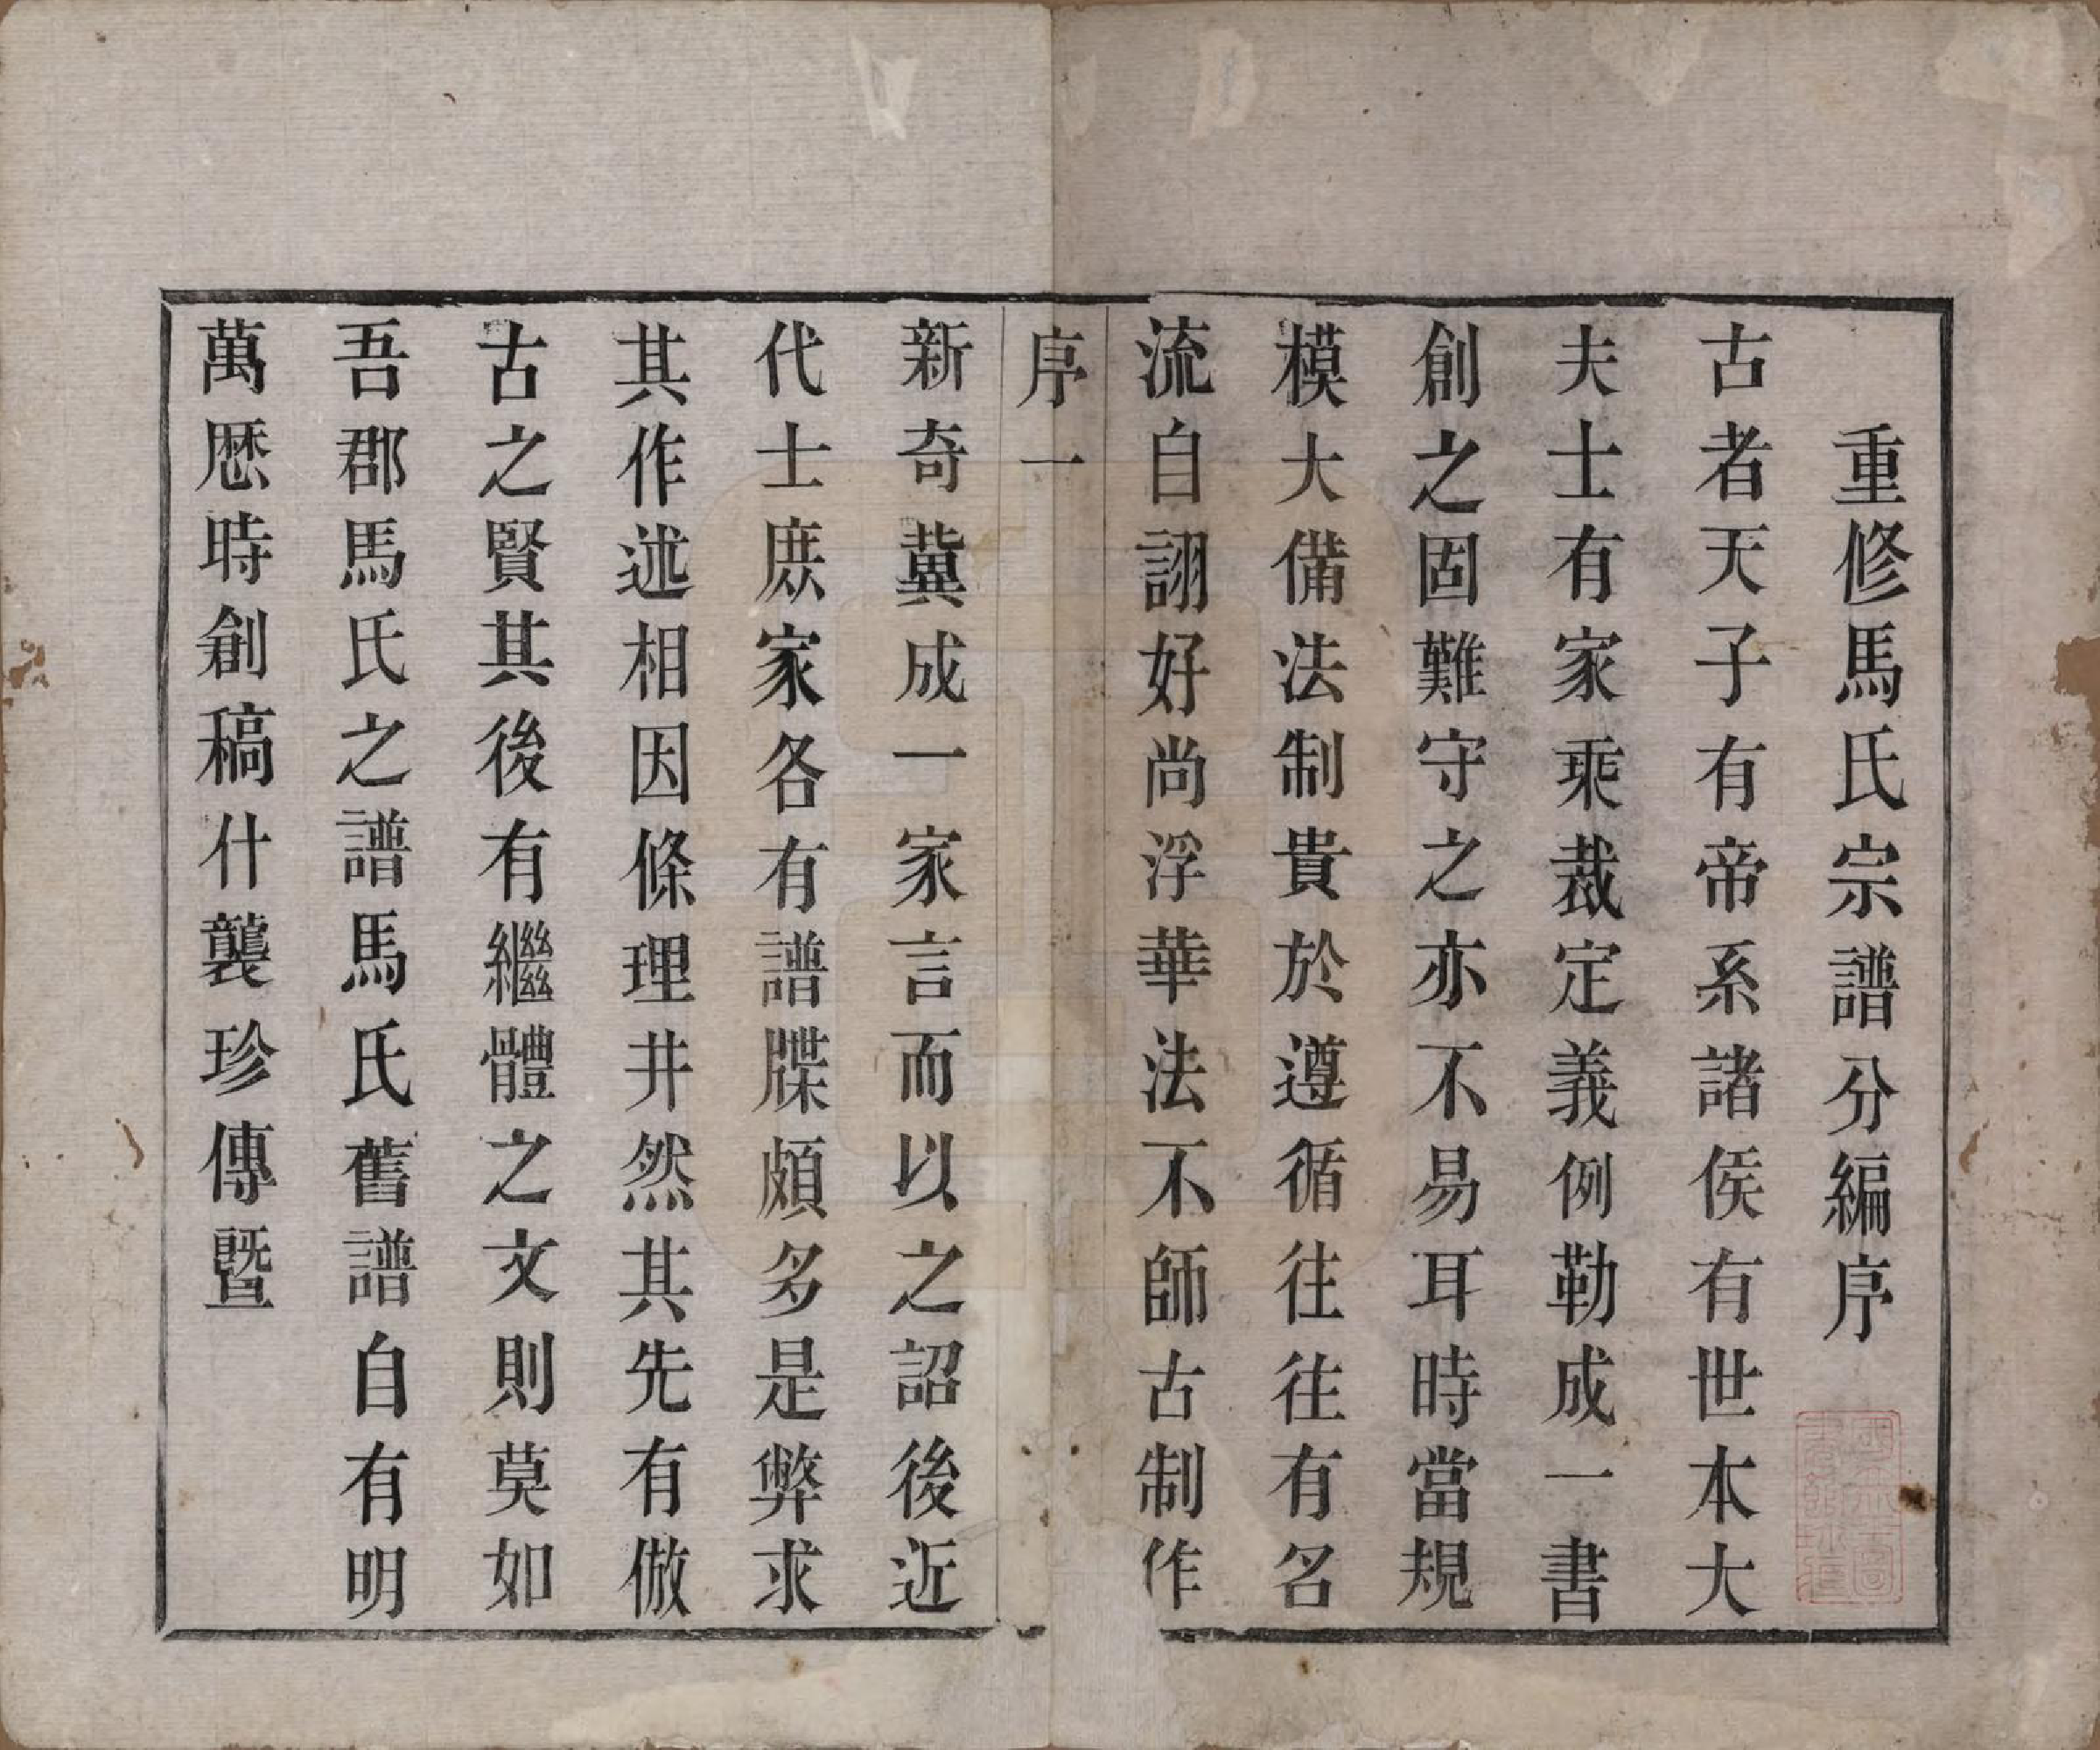 重修馬氏宗譜分編序
古者天子有帝系諸侯有世本大
夫士有家乘裁定義例勒成一書
創之固難守之亦不易耳時當規
模大備法制貴於遵循往往有名
流自詡好尚浮華法不師古制作
序一
新奇冀成一家言而以之詔後近
代士庶家各有譜牒頗多是弊求
其作述相因條理井然其先有倣
古之賢其後有繼體之文則莫如
吾郡馬氏之譜馬氏舊譜自有明
萬厯時創稿什襲珍傳暨